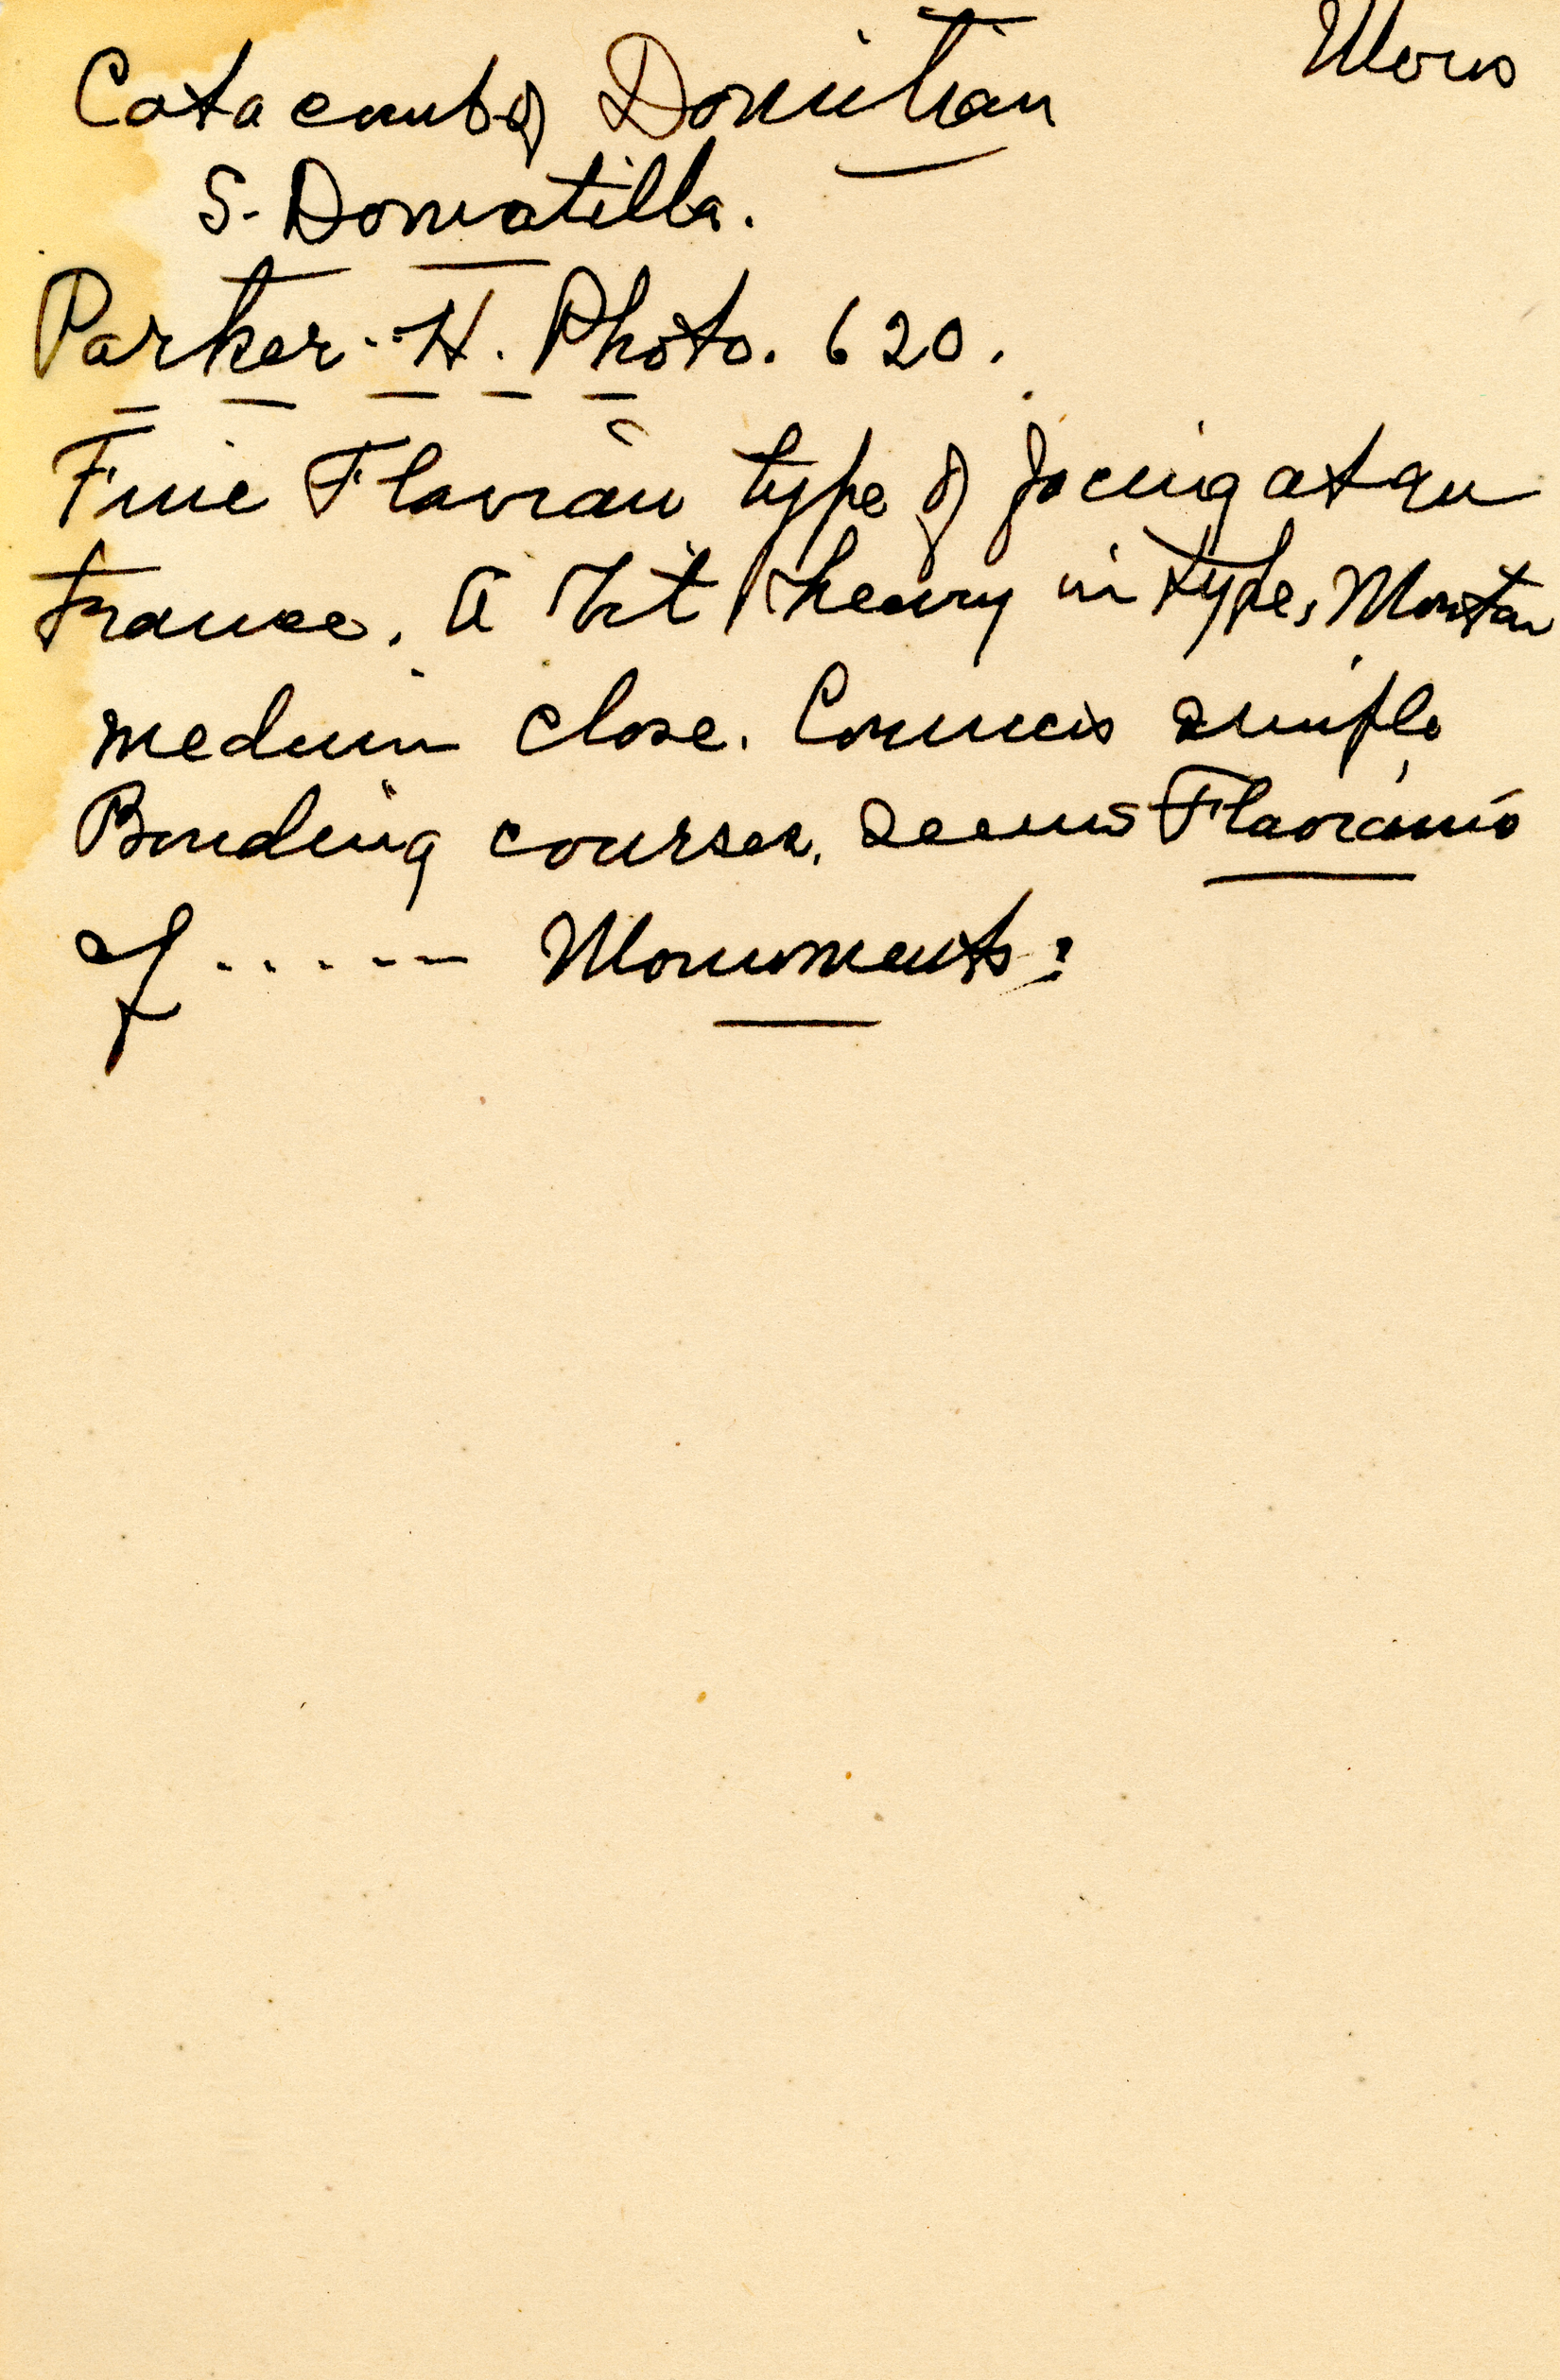 Catacomb of Domitian
S. Domatilla.
Parker. H. Photo. 620.
Fine Flavian type of facing at en
trance. A bit heavy in type, Mortar
medium close. Cornices simple
Bonding courses. Seems Flavian is
cf ..... Monuments?